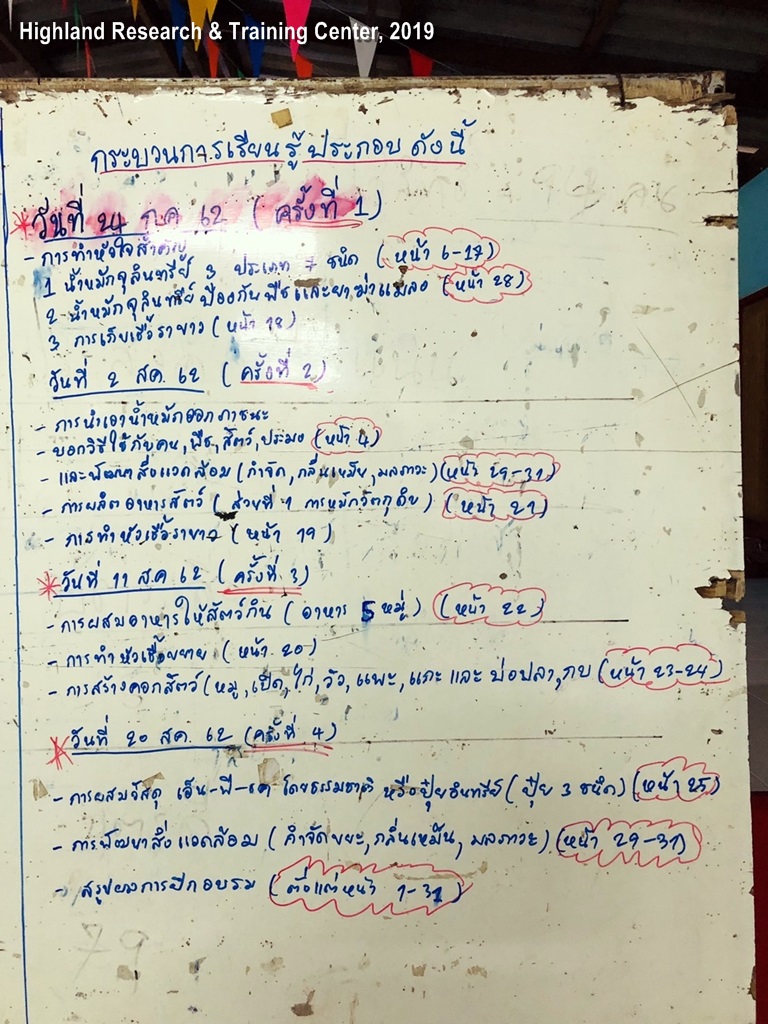 Highland Research & Training Center, 2019
กระบวนการเรียนรู้ ประกอบ ดังนี้
* วันที่ 24 ก.ค 62 (ครั้งที่ 1)
- การทำหัวใจสำคัญ
1 น้ำหมักจุลินทรีย์ 3 ประเภท 7 ชนิด (หน้า 6-17)
2 น้ำหมักจุลินทรีย์ ป้องกันพืชและยาฆ่าแมลง (หน้า 28)
3 การเก็บเชื้อราขาว (หน้า 18)
วันที่ 2 สค. 62 (ครั้งที่ 2)
- การนำเอาน้ำหมักออกภาชนะ
- บอกวิธีใช้กับคน, พืช, สัตว์, ประมง (หน้า 4)
- และพัฒนาสิ่งแวดล้อม (กำจัด, กลิ่นเหม็น, มลภาวะ) (หน้า 29-31)
- การผลิตอาหารสัตว์ (ส่วนที่ 1 การหมักวัตถุดิบ) (หน้า 21)
- การทำหัวเชื้อราขาว (หน้า 19)
* วันที่ 11 ส.ค 62 (ครั้งที่ 3)
- การผสมอาหารให้สัตว์กิน (อาหาร 5 หมู่) (หน้า 22)
- การทำหัวเชื้อขยาย (หน้า 20)
- การสร้างคอกสัตว์ (หมู, เป็ด, ไก่, วัว, แพะ, แกะ และ บ่อปลา, กบ (หน้า 23-24)
* วันที่ 20 สค. 62 (ครั้งที่ 4)
- การผสมวัสดุ เอ็น-พี-เค โดยธรรมชาติ หรือปุ๋ยอินทรีย์ (ปุ๋ย 3 ชนิด) (หน้า 25)
- การพัฒนาสิ่งแวดล้อม (กำจัดขยะ, กลิ่นเหม็น, มลภาวะ) (หน้า 29-31)
- สรุปผลการฝึกอบรม (ตั้งแต่หน้า 1-31)
79